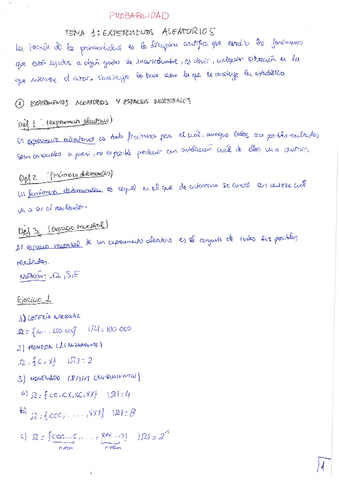 PROBABILIDAD
TEMA 1: EXPERIMENTOS ALEATORIOS
La teoría de la probabilidad es la disciplina científica que estudia los fenómenos
que están sujetos a algún grado de incertidumbre, es decir, cualquier situación en la
que interviene el azar. Constituye la base sobre la que se construye la estadística
① EXPERIMENTOS ALEATORIOS Y ESPACIOS MUESTRALES
Def 1 (experimento aleatorio)
Un experimento aleatorio es todo fenómeno para el cual, aunque todos sus posibles resultados
sean conocidos a priori, no es posible predecir con exactitud cuál de ellos va a ocurrir.
Def 2 (fenómeno determinista)
Un fenómeno determinista es aquel en el que de antemano se conoce con certeza cuál
va a ser el resultado.
Def 3 (espacio muestral)
El espacio muestral de un experimento aleatorio es el conjunto de todos sus posibles
resultados.
Notación: Ω, S, E
Ejercicio 1
1) LOTERÍA NACIONAL
|Ω| = 100 000
2) MONEDA (1 LANZAMIENTO)
Ω = {C, X} |Ω| = 2
3) MONEDA (2/3/n LANZAMIENTOS)
a) Ω = {CC, CX, XC, XX} |Ω| = 4
b) Ω = {CCC, ...., XXX} |Ω| = 8
c) Ω = {CCC...C, ...., XXX...X} |Ω| = 2ⁿ
1